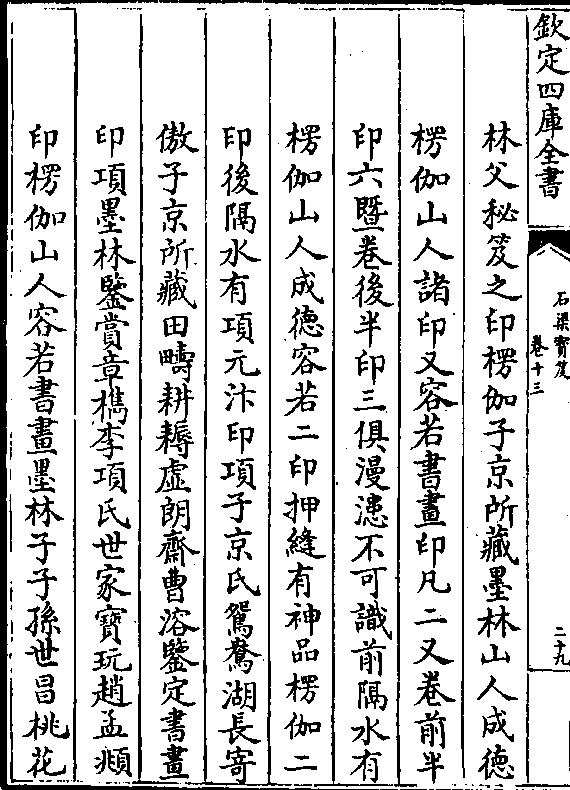 欽定四庫全書
石渠寶笈
卷十三
二十九
林父秘笈之印楞伽子京所藏墨林山人成德
楞伽山人諸印又容若書畫印凡二又卷前半
印六暨卷後半印三俱漫漶不可識前隔水有
楞伽山人成德容若二印押縫有神品楞伽二
印後隔水有項元汴印項子京氏鴛鴦湖長寄
傲子京所藏田疇耕耨虛朗齋曹溶鑒定書畫
印項墨林鑒賞章檇李項氏世家寶玩趙孟頫
印楞伽山人容若書畫墨林子子孫世昌桃花